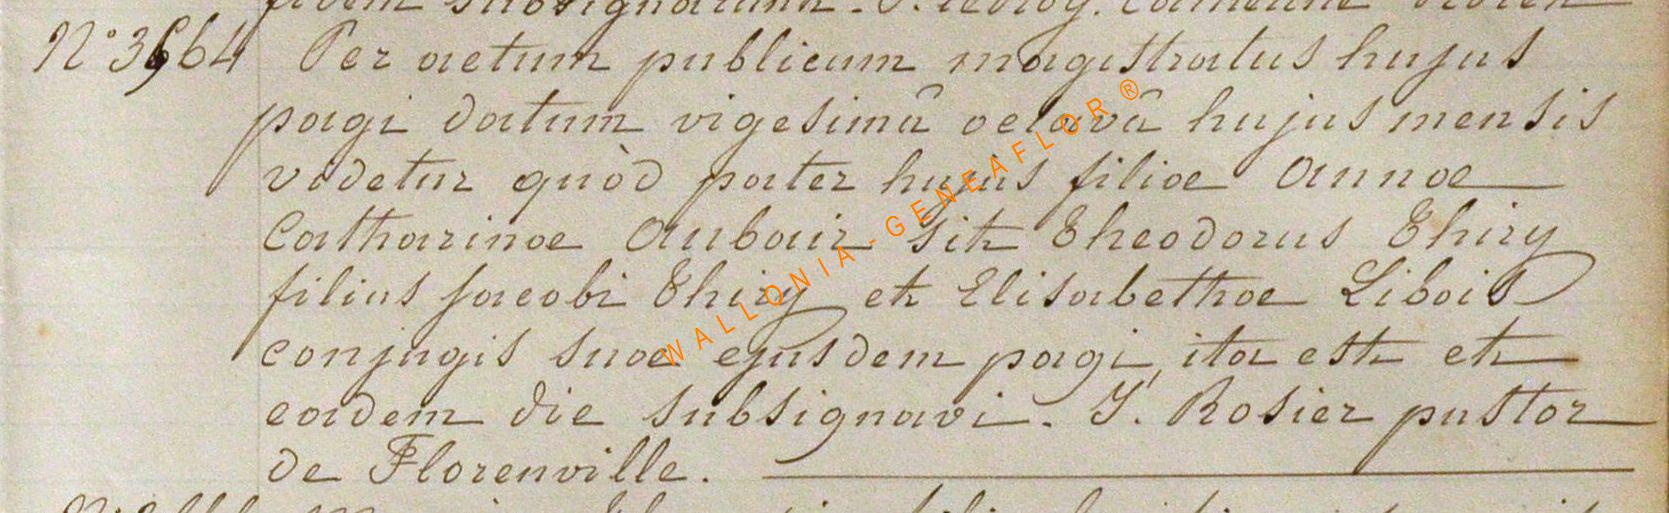 fidem subsignarunt.
N° 3564 Per actum publicum magistratus hujus
pagi datum vigesimâ octavâ hujus mensis
videtur quòd pater hujus filiae annae
Catharinae Aubair sit Theodorus Thiry
filius jacobi Thiry et Elisabethae Libois
conjugis suae ejusdem pagi, ita est et
eadem die subsignavi. J. Rosier pastor
de Florenville.
WALLONIA - GENEAFLOR ®